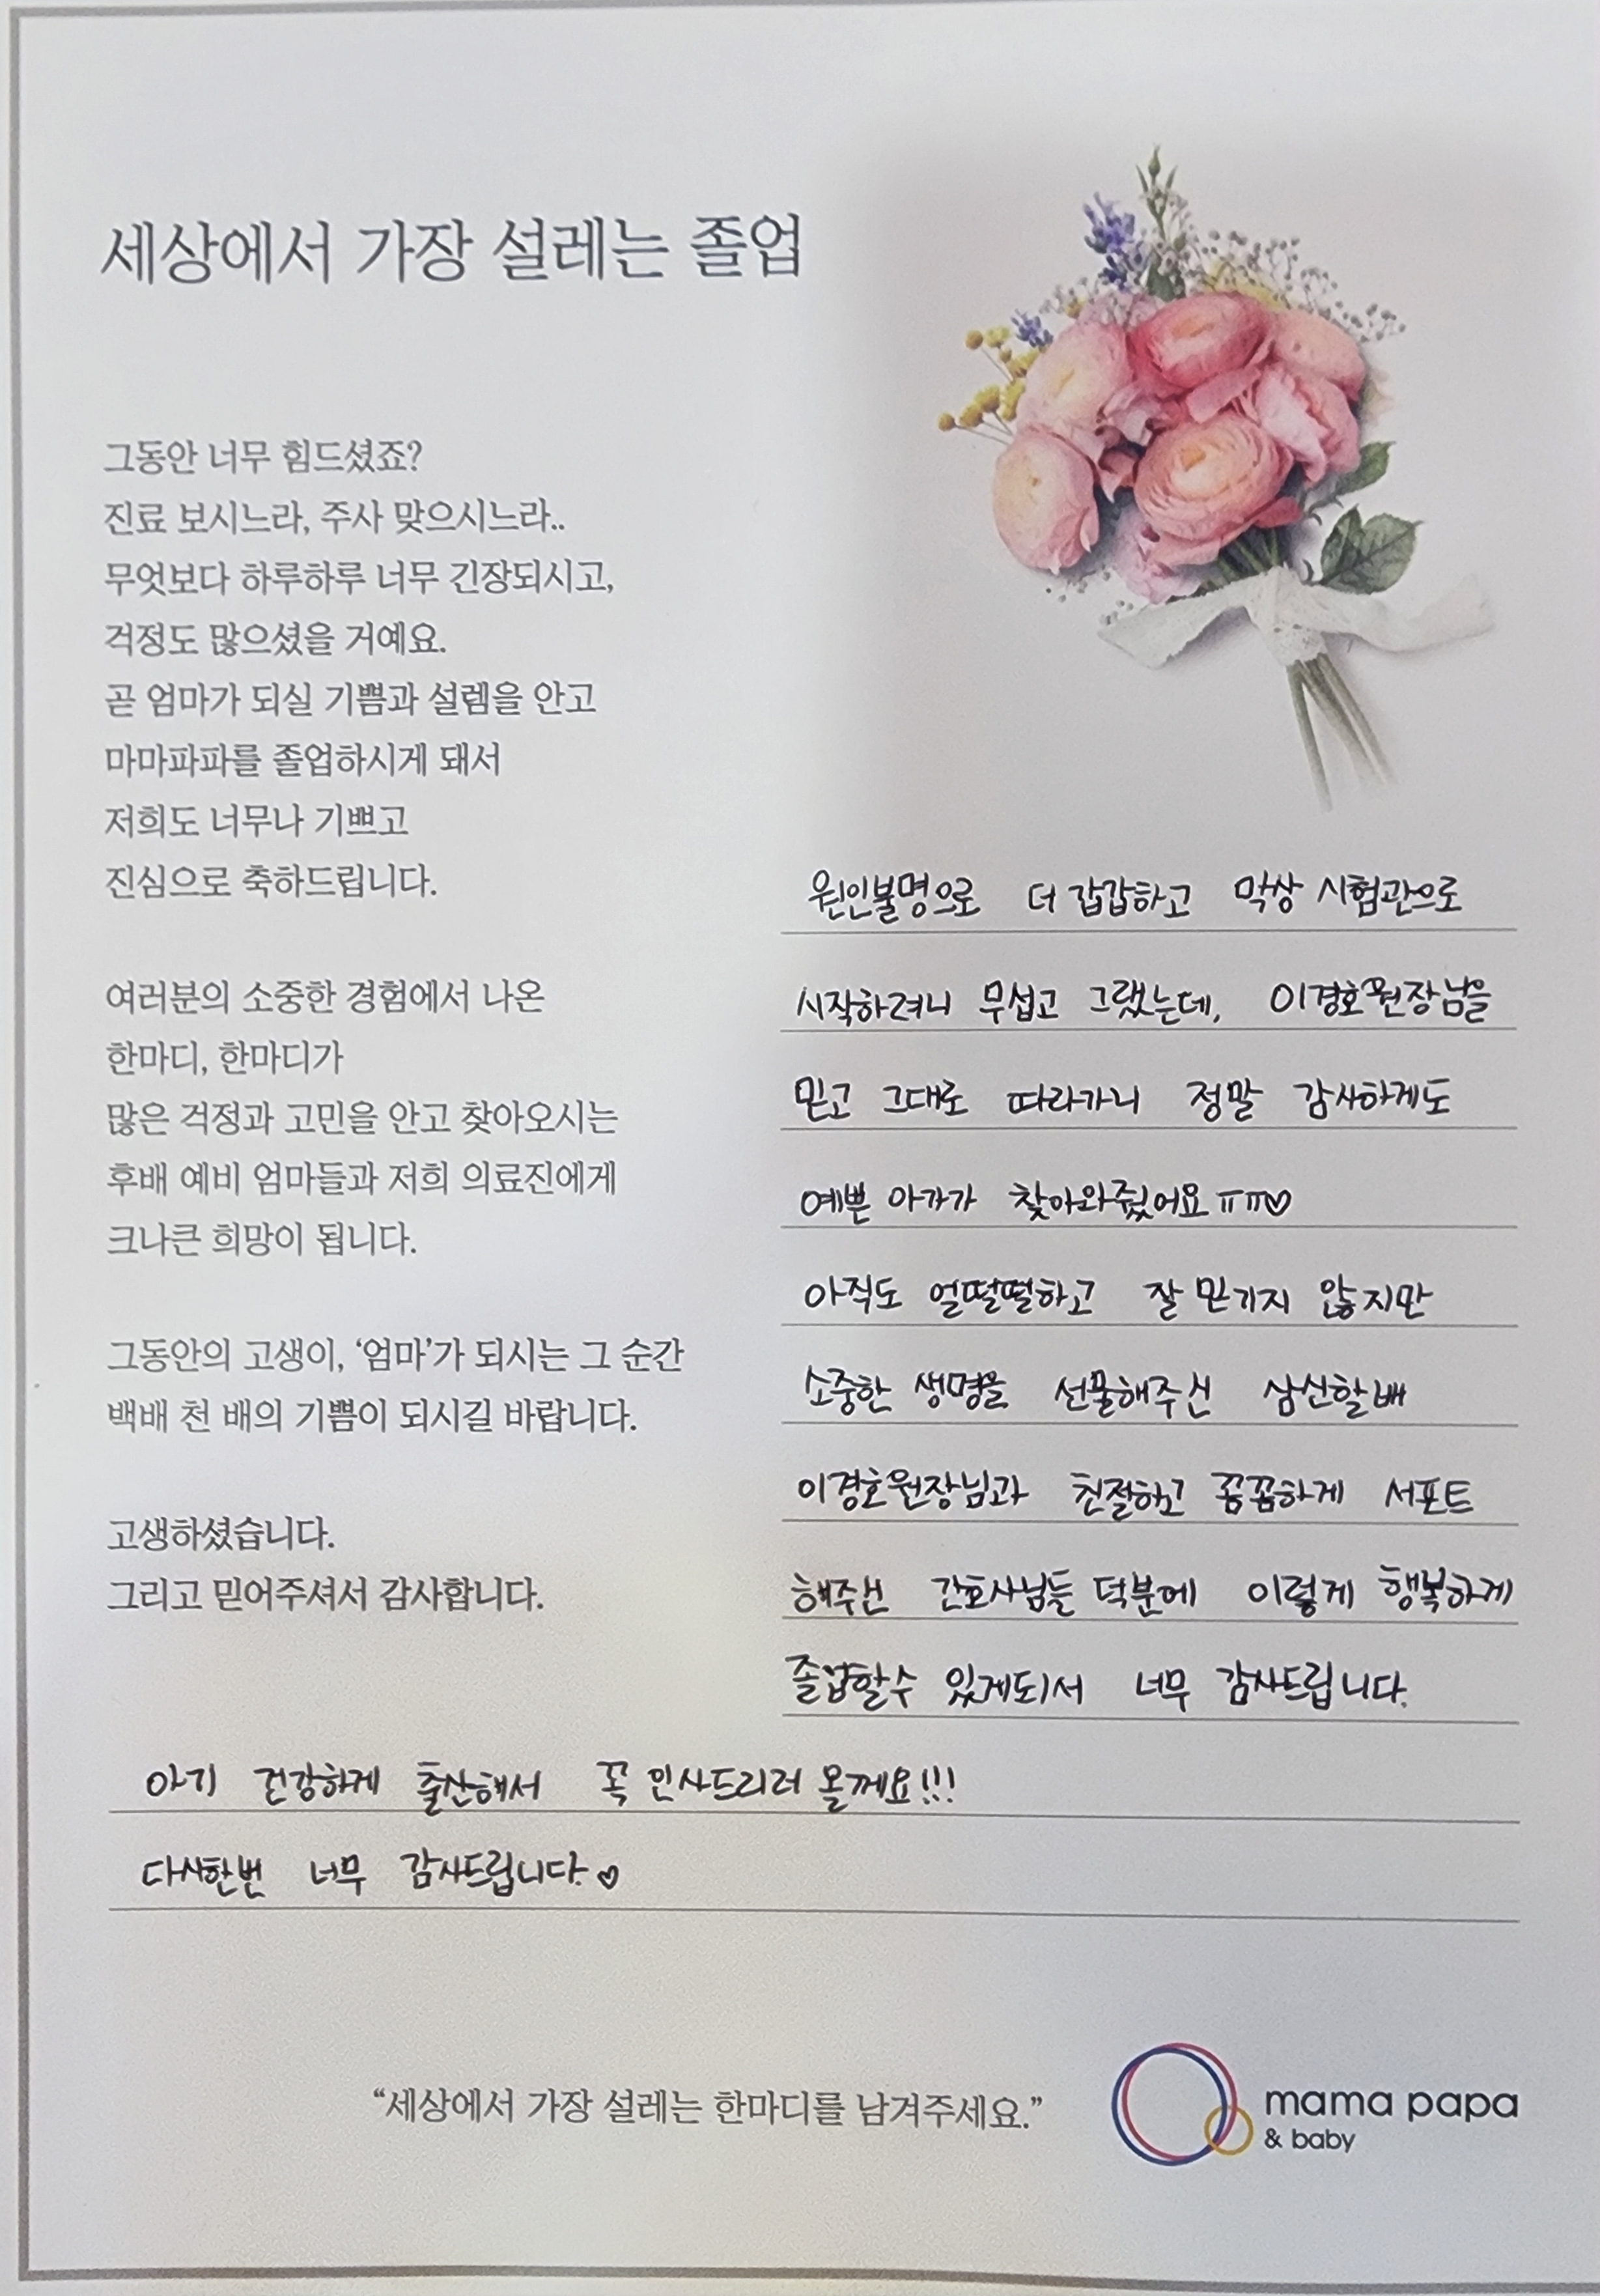 세상에서 가장 설레는 졸업
그동안 너무 힘드셨죠?
진료 보시느라, 주사 맞으시느라..
무엇보다 하루하루 너무 긴장되시고,
걱정도 많으셨을 거예요.
곧 엄마가 되실 기쁨과 설렘을 안고
마마파파를 졸업하시게 돼서
저희도 너무나 기쁘고
진심으로 축하드립니다.
여러분의 소중한 경험에서 나온
한마디, 한마디가
많은 걱정과 고민을 안고 찾아오시는
후배 예비 엄마들과 저희 의료진에게
크나큰 희망이 됩니다.
그동안의 고생이, ‘엄마’가 되시는 그 순간
백배 천 배의 기쁨이 되시길 바랍니다.
고생하셨습니다.
그리고 믿어주셔서 감사합니다.
원인불명으로 더 갑갑하고 막상 시험관으로
시작하려니 무섭고 그랬는데, 이경호원장님을
믿고 그대로 따라가니 정말 감사하게도
예쁜 아가가 찾아와줬어요ㅠㅠ♡
아직도 얼떨떨하고 잘 믿기지 않지만
소중한 생명을 선물해주신 삼신할배
이경호원장님과 친절하고 꼼꼼하게 서포트
해주신 간호사님들 덕분에 이렇게 행복하게
졸업할수 있게되서 너무 감사드립니다.
아기 건강하게 출산해서 꼭 인사드리러 올께요!!!
다시한번 너무 감사드립니다.♡
“세상에서 가장 설레는 한마디를 남겨주세요.”
mama papa
& baby